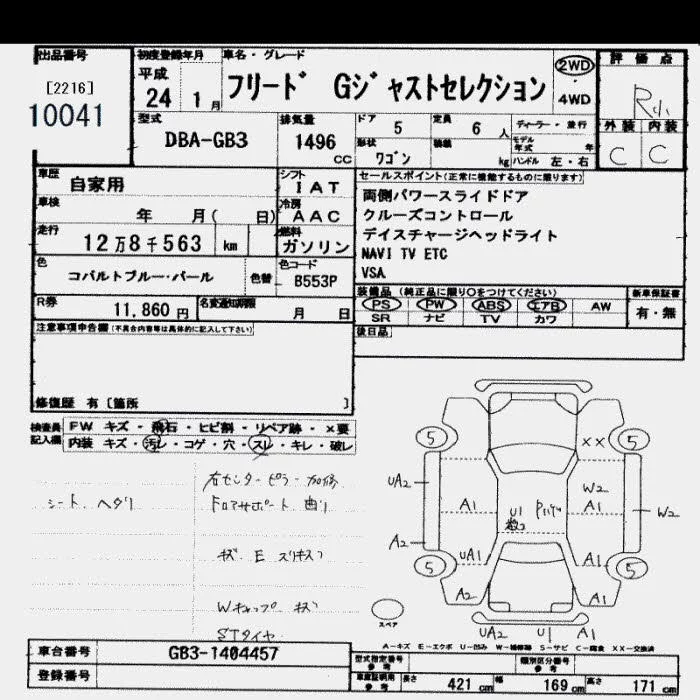 出品番号
[2216]
10041
初度登録年月
平成
24 1 月
車名・グレード
フリード Gジャストセレクション
2WD
・
4WD
評価点
R小
外装 内装
C C
型式
DBA-GB3
排気量
1496
CC
ドア
5
定員
6 人
ディーラー・並行
形状
ワゴン
積載
kg
モデル年式 年
ハンドル 左・右
車歴
自家用
シフト
IAT
車検
年 月( 日)
冷房
AAC
走行
12万8千563 km
燃料
ガソリン
色
コバルトブルー・パール
色替
色コード
B553P
R券
11,860 円
名変通知期限
月 日
セールスポイント(正常に機能するものに限ります)
両側パワースライドドア
クルーズコントロール
デイスチャージヘッドライト
NAVI TV ETC
VSA
装備品 (純正品に限り○をつけてください)
PS PW ABS エアB AW
SR ナビ TV カワ
新車保証書
有・無
後日品
注意事項申告欄(不具合内容等は具体的に記入して下さい)
修復歴 有〔箇所 〕
検査員記入欄
FW キズ・飛石・ヒビ割・リペア跡・×要
内装 キズ・汚レ・コゲ・穴・スレ・キレ・破レ
シート ヘタリ
右センターピラー 加修
ドアサポート 曲り
キズ E スリキズ
Wキャップ キズ
STタイヤ
5 5
××
UA2
W2
A1 A1
W2
U1
A2
UA1 A1
5 5
A2 A1
スペア
UA2 U1 A1
A-キズ E-エクボ U-凹み W-補修跡 S-サビ C-腐食 XX-交換済
車台番号
GB3-1404457
登録番号
型式指定番号
類別区分番号
車庫証明用 長さ 421 cm 幅 169 cm 高さ 171 cm